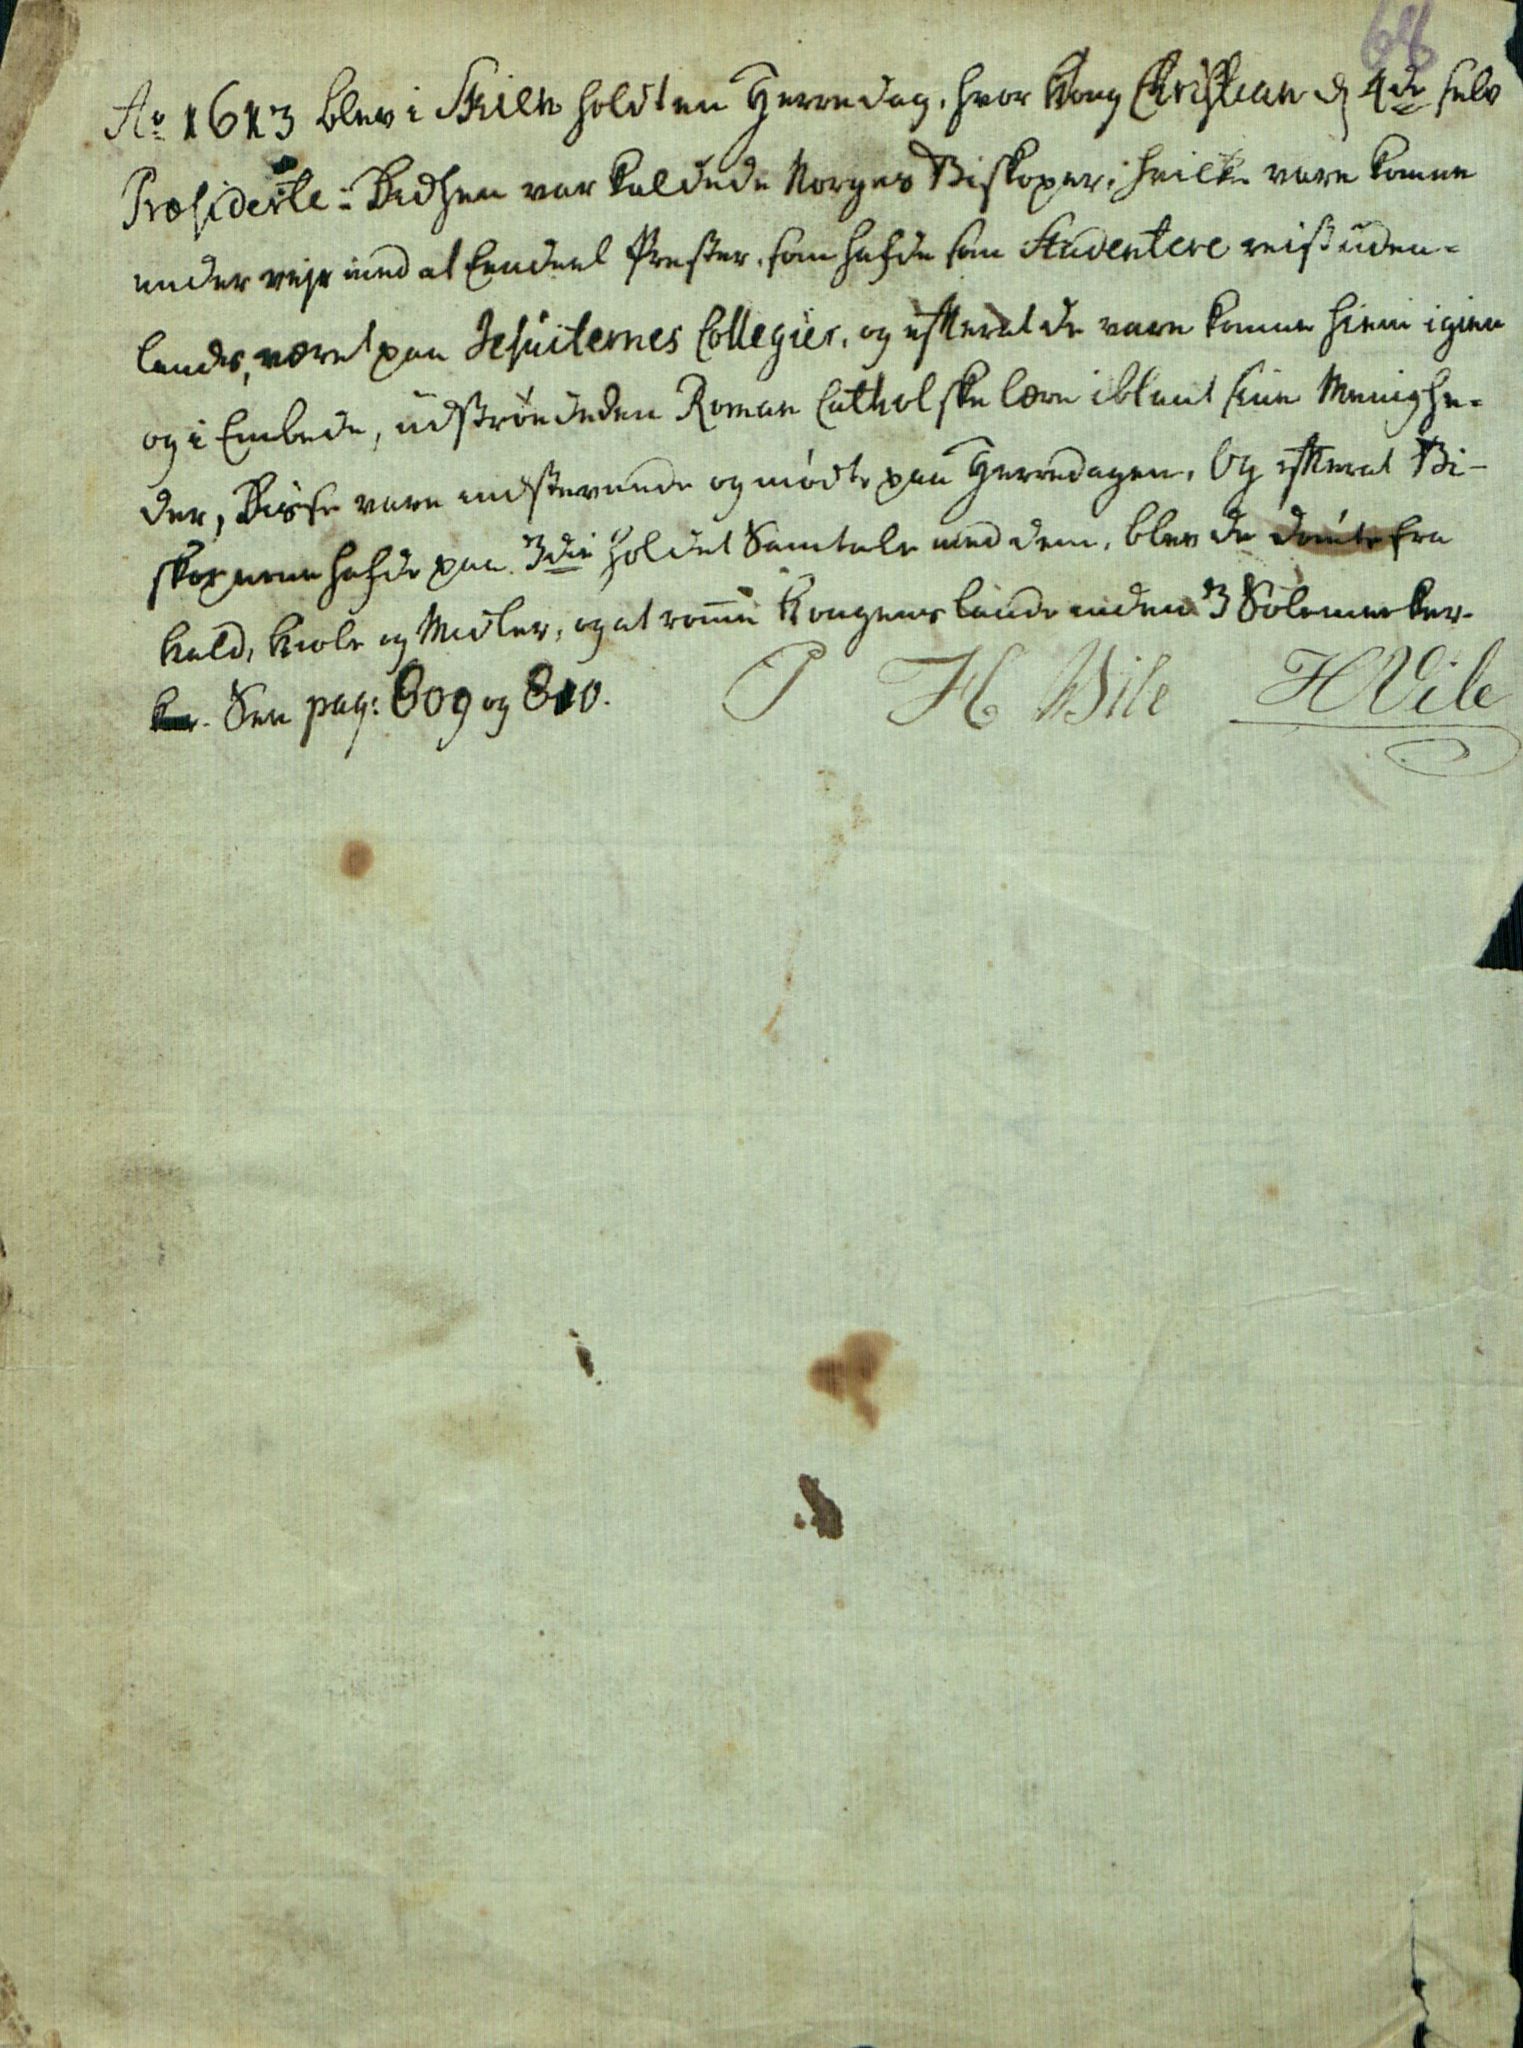 68
Ao 1613 blev i Skien holdt en Herredag, hvor Kong Christian d 4de selv
Præsiderte: Didhen var kaldede Norges Biskoper, hvilke vare komne
under vejr med at Eendeel Prester, som hafde som Studentere reist uden-
lands, været paa Jesuiternes Collegier, og efterat de vare komne hiem igien
og i Embede, udströede den Roman Catholske lære iblant sine Menighe-
der, Disse vare indstevnede og mödte paa Herredagen, Og efterat Bi-
skopperne hafde paa 3die holdet Samtale med dem, blev de dömte fra
Kald, Kiole og Midler, og at römme Kongens lande inden 3 Solemerker.
See pag: 809 og 810. P H Vile HVile